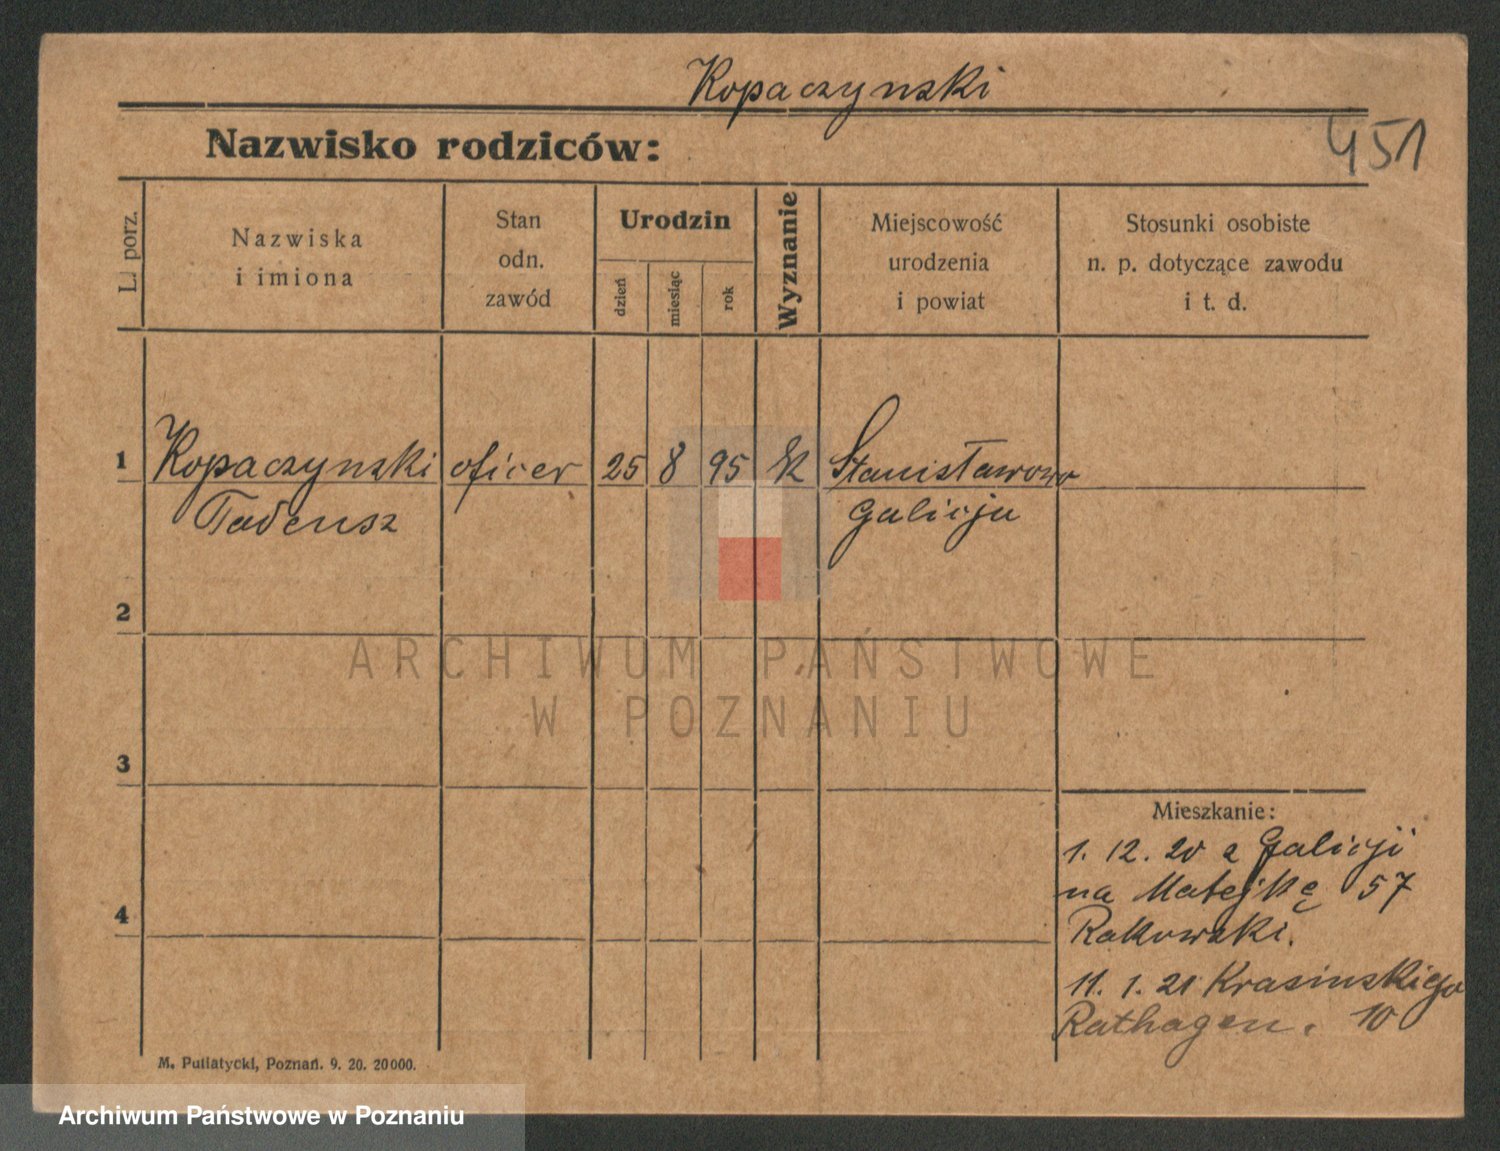 Kopaczynski
Nazwisko rodziców:
451
L. porz.
Nazwiska
i imiona
Stan
odn.
zawód
Urodzin
dzień
miesiąc
rok
Wyznanie
Miejscowość
urodzenia
i powiat
Stosunki osobiste
n. p. dotyczące zawodu
i t. d.
1 Kopaczynski oficer 25 8 95 k Stanisławowo
Tadeusz Galicja
2
ARCHIWUM PAŃSTWOWE
W POZNANIU
3
Mieszkanie:
1. 12. 20 z Galicji
na Matejkę 57
4
Rakowski.
11. 1. 21 Krasinskiego
Rathagen. 10
M. Putiatycki, Poznań. 9. 20. 20000.
Archiwum Państwowe w Poznaniu